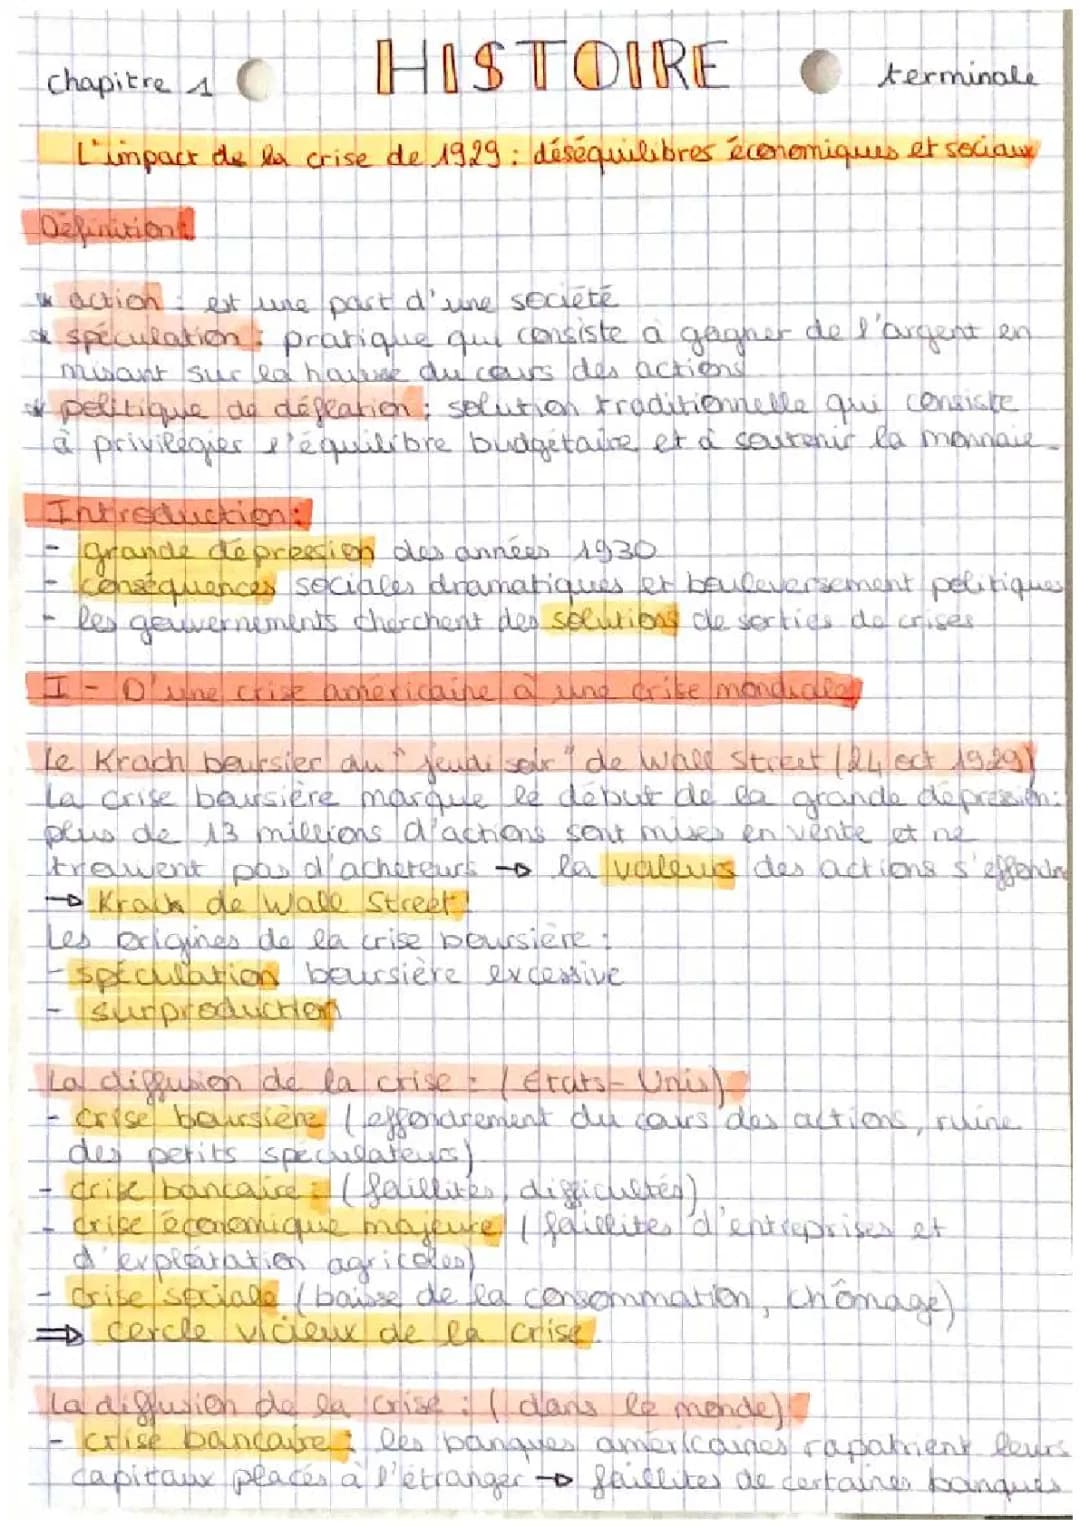 chapitre 1 HISTOIRE terminale
L'impact de la crise de 1929 : déséquilibres économiques et sociaux
Définition :
* action : est une part d'une société
* spéculation : pratique qui consiste à gagner de l'argent en
misant sur la hausse du cours des actions
* politique de déflation : solution traditionnelle qui consiste
à privilégier l'équilibre budgétaire et à soutenir la monnaie
Introduction :
- grande dépression des années 1930
- conséquences sociales dramatiques et bouleversement politiques
- les gouvernements cherchent des solutions de sorties de crises
I - D'une crise américaine à une crise mondiale
Le Krach boursier du "jeudi soir" de Wall Street (24 oct 1929)
La crise boursière marque le début de la grande dépression :
plus de 13 millions d'actions sont mises en vente et ne
trouvent pas d'acheteurs → la valeurs des actions s'effondre
→ Krach de Wall Street
Les origines de la crise boursière :
- spéculation boursière excessive
- surproduction
La diffusion de la crise : (États-Unis)
- crise boursière (effondrement du cours des actions, ruine
des petits spéculateurs)
- crise bancaire : (faillites, difficultés)
- crise économique majeure (faillites d'entreprises et
d'explaration agricoles)
- crise sociale (baisse de la consommation, chômage)
⇒ cercle vicieux de la crise.
La diffusion de la crise : (dans le monde)
- crise bancaire : les banques américaines rapatrient leurs
capitaux placés à l'étranger → faillites de certaines banques